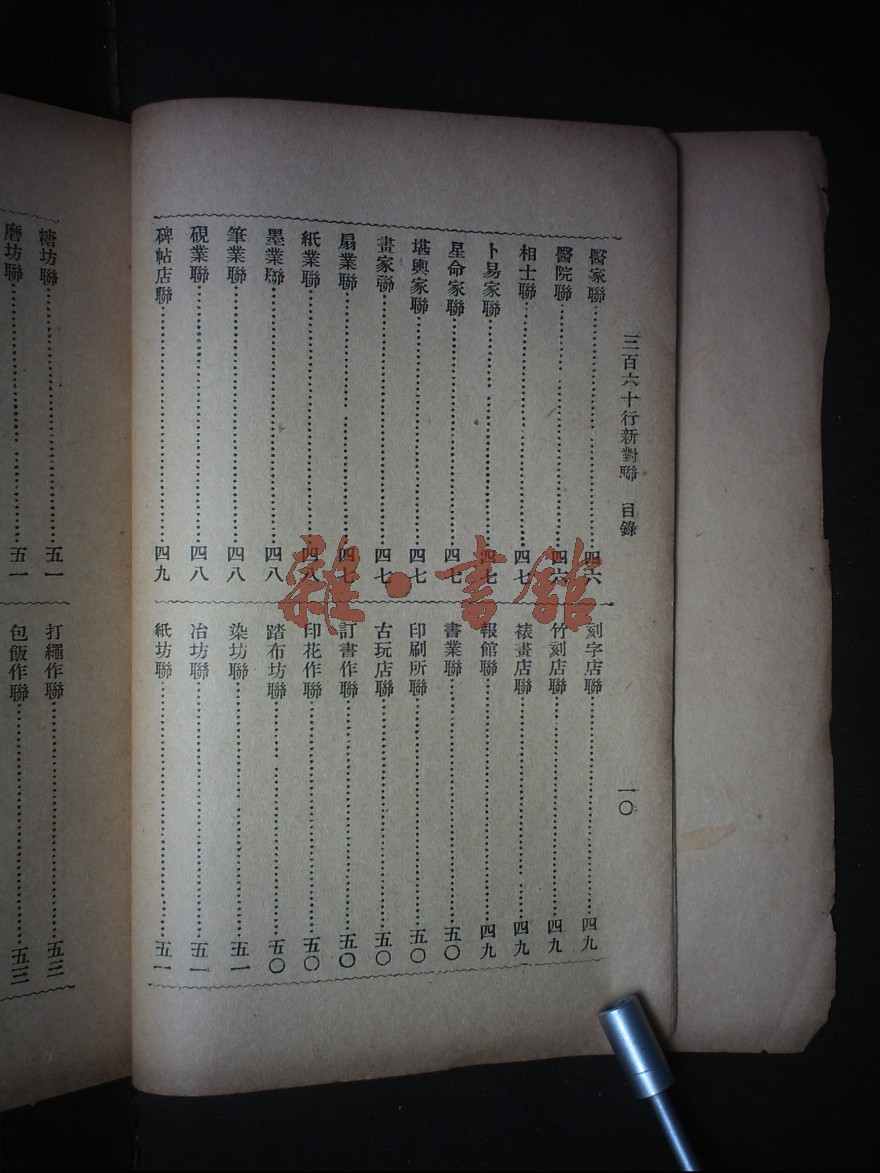 三百六十行新對聯 目錄 一〇
醫家聯 四六
醫院聯 四六
相士聯 四七
卜易家聯 四七
星命家聯 四七
堪輿家聯 四七
畫家聯 四七
扇業聯 四七
紙業聯 四八
墨業聯 四八
筆業聯 四八
硯業聯 四八
碑帖店聯 四九
刻字店聯 四九
竹刻店聯 四九
裱畫店聯 四九
報館聯 四九
書業聯 五〇
印刷所聯 五〇
古玩店聯 五〇
訂書作聯 五〇
印花作聯 五〇
踏布坊聯 五〇
染坊聯 五一
冶坊聯 五一
紙坊聯 五一
糖坊聯 五一
磨坊聯 五一
打繩作聯 五三
包飯作聯 五三
雜·書館